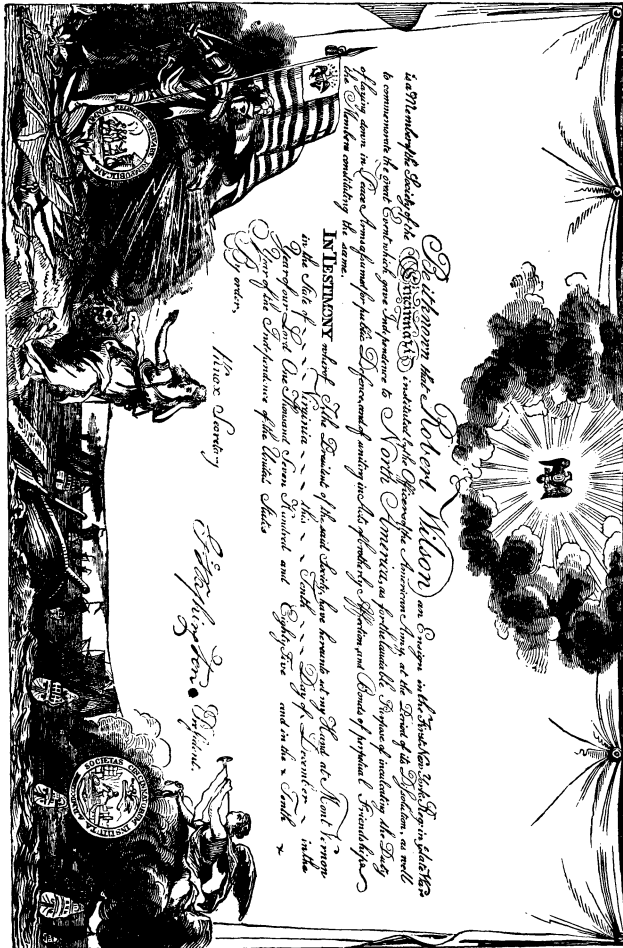 Be it known that Robert Wilson an Ensign in the First New York Reg in state War
is a Member of the Society of the Cincinnati; instituted by the Officers of the American Army, at the Period of its Dissolution, as well
to commemorate the great Event which gave Independence to North America, as for the laudable Purpose of inculcating the Duty
of laying down in Peace Arms assumed for public Defence, and of uniting in Acts of brotherly Affection, and Bonds of perpetual Friendship
the Members constituting the same.
IN TESTIMONY whereof I, the President of the said Society, have hereunto set my Hand at Mount Vernon
in the State of Virginia this Tenth Day of December in the
Year of our Lord One Thousand Seven Hundred and Eighty Five and in the Tenth
Year of the Independence of the United States
By order,
Knox Secretary
G Washington President.
OMNIA RELINQUIT SERVARE REMPUBLICAM
SOCIETAS CINCINNATORUM INSTITUTA